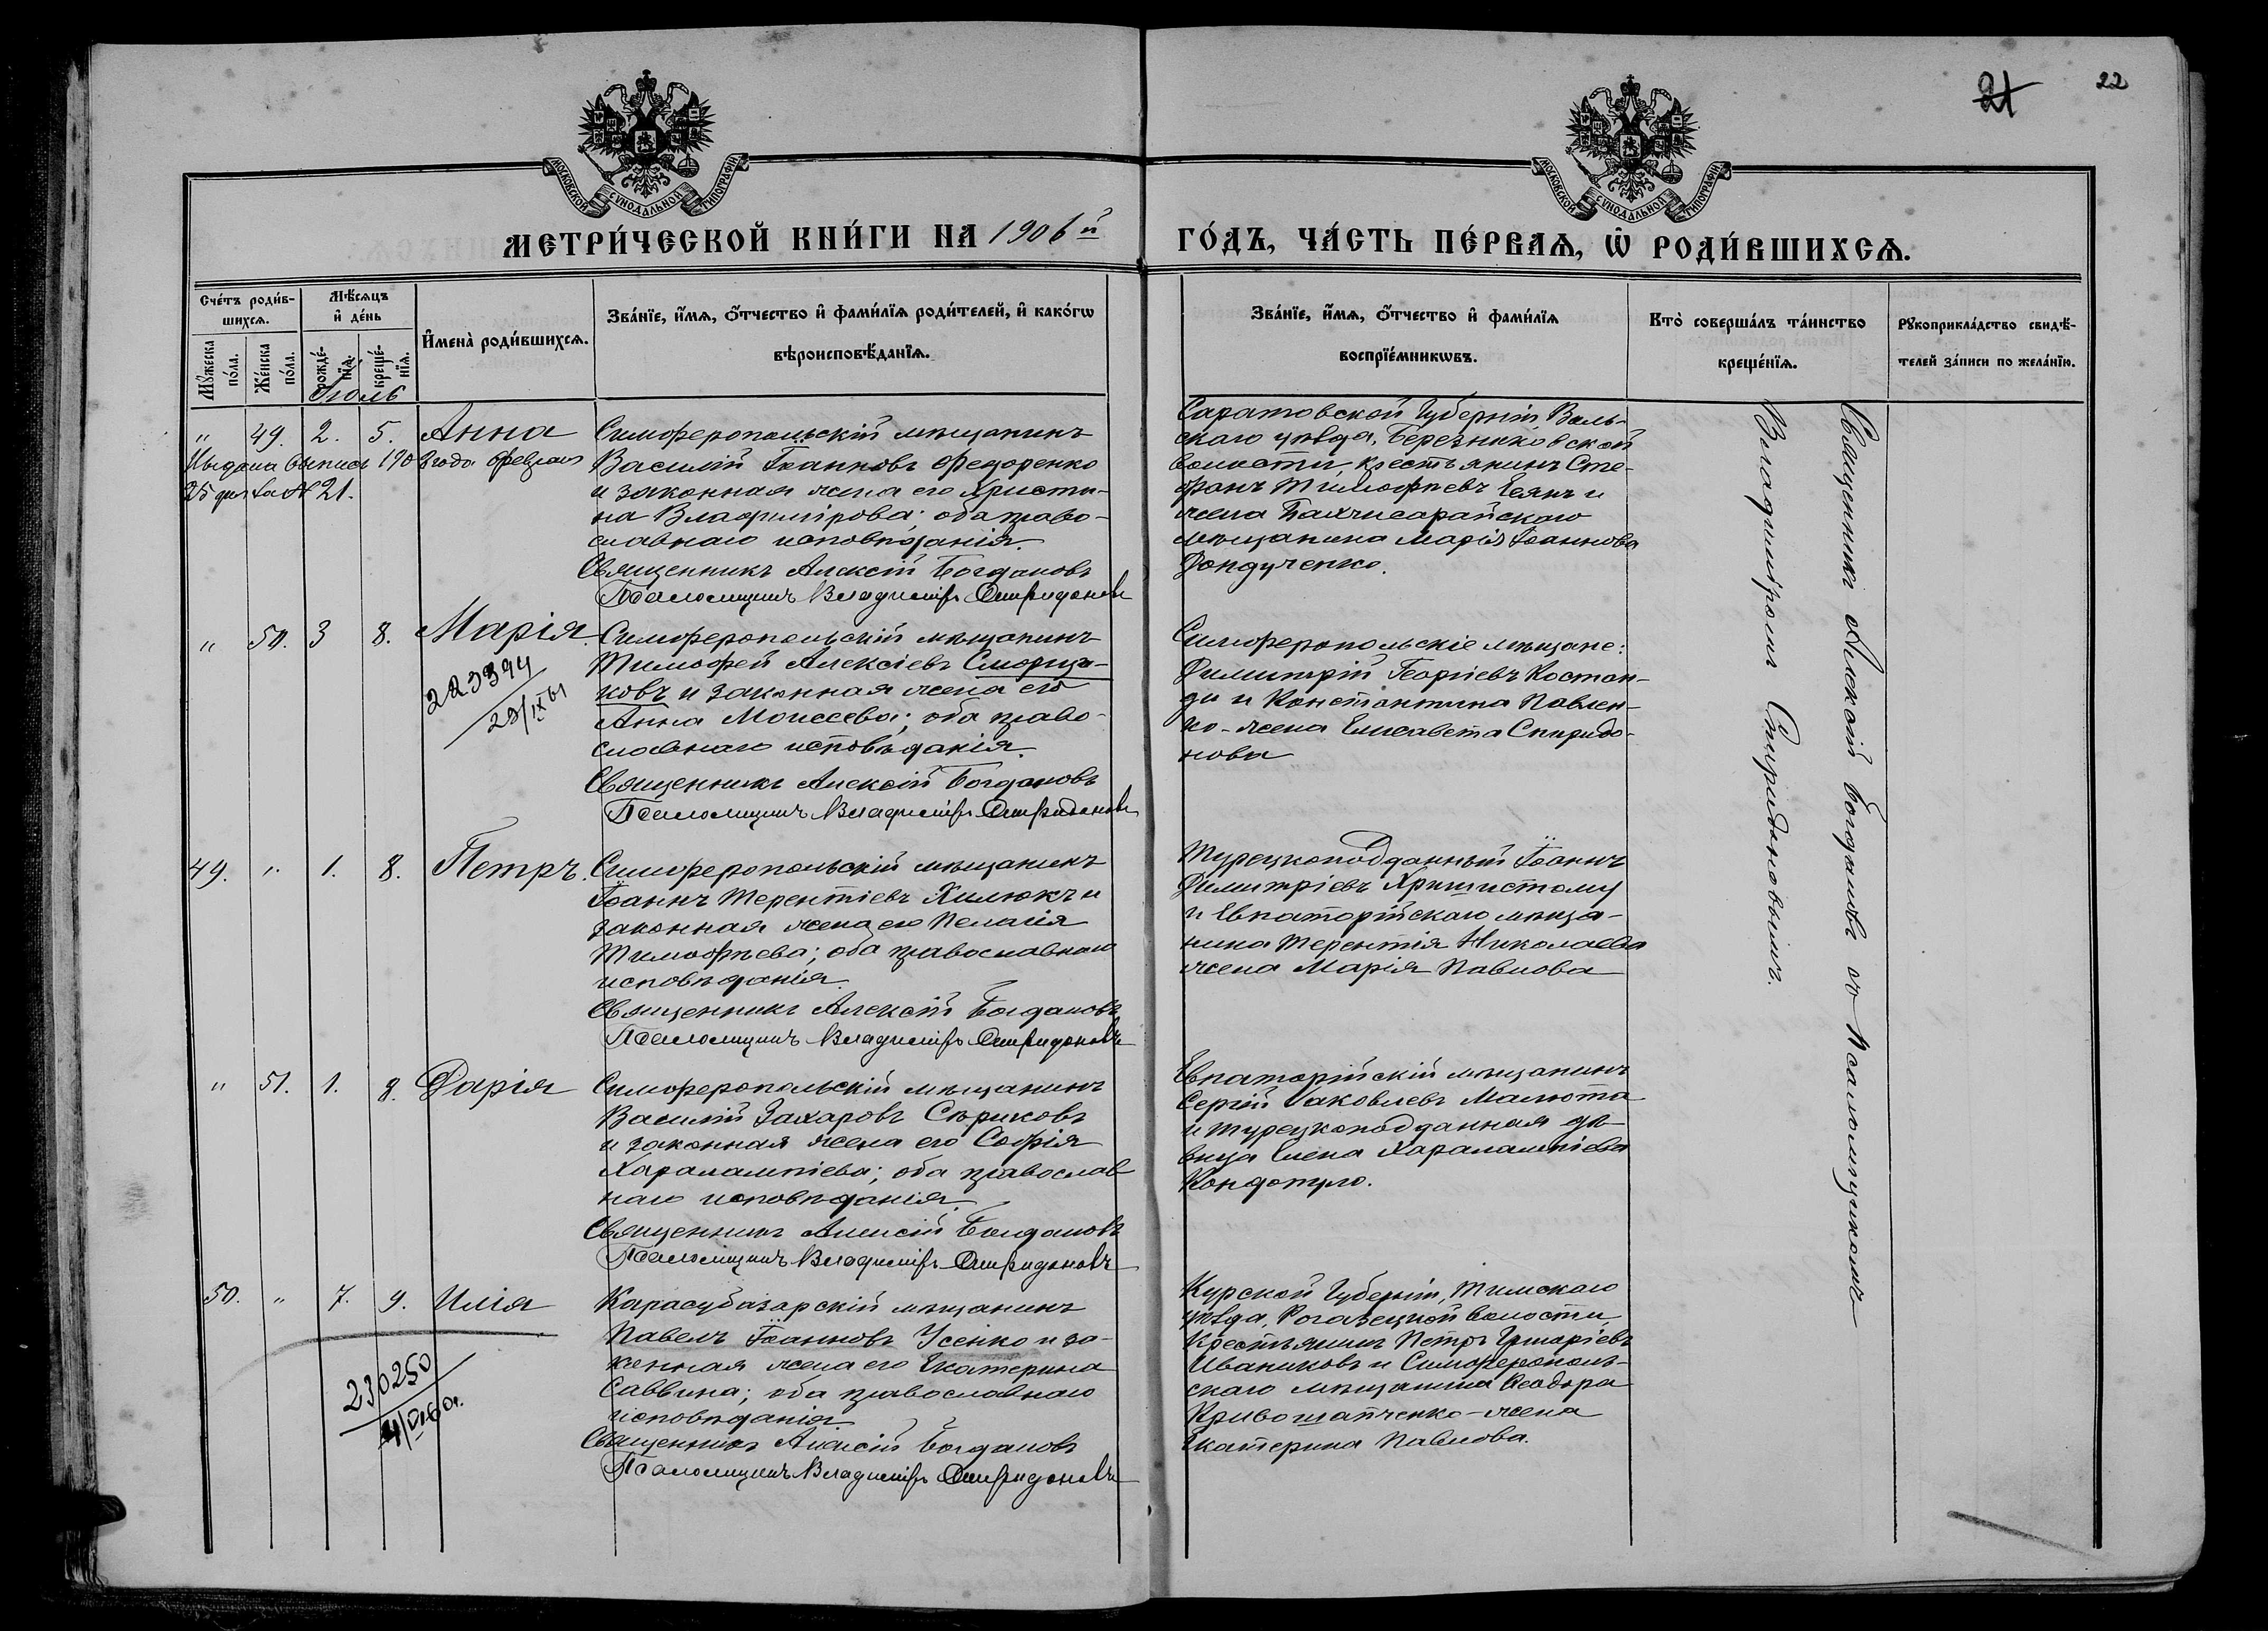 21 22
МОСКОВСКОЙ СѴНОДАЛЬНОЙ ТИПОГРАФІИ
МОСКОВСКОЙ СѴНОДАЛЬНОЙ ТИПОГРАФІИ
МЕТРИ́ЧЕСКОЙ КНИ́ГИ НА 1906й ГО́ДЪ, ЧА́СТЬ ПЕ́РВАѦ, Ѡ҆ РОДИ́ВШИХСѦ.
Сче́тъ роди́в-
шихсѧ.
Мꙋ́жеска по́ла.
Же́нска по́ла.
Мѣ́сѧцъ
и҆ де́нь
рожде́-
нїѧ.
креще́-
нїѧ.
И҆мена̀ роди́вшихсѧ.
Зва́нїе, и҆́мѧ, ѻ҆́тчество и҆ фами́лїѧ роди́телей, и҆ како́гѡ
вѣроисповѣ́данїѧ.
Зва́нїе, и҆́мѧ, ѻ҆́тчество и҆ фами́лїѧ
воспрїе́мникѡвъ.
Кто̀ соверша́лъ та́инство
креще́нїѧ.
Рꙋкоприкла́дство свидѣ́-
телей за́писи по жела́нїю.
Іюль
" 49. 2. 5. Анна
Выдана выпись 1908 года февраля
25 дня за № 21.
Симферопольскій мѣщанинъ
Василій Іоанновъ Федоренко
и законная жена его Христи-
на Владимірова; оба право-
славнаго исповѣданія.
Священникъ Алексій Богдановъ
Псаломщикъ Владиміръ Спиридоновъ
Саратовской Губерніи, Воль-
скаго уѣзда, Березниковской
волости, крестьянинъ Сте-
фанъ Тимофеевъ и
жена Бахчисарайскаго
мѣщанина Марія Іоаннова
Дондученко.
" 50. 3 8. Марія
223394
29/IX 61
Симферопольскій мѣщанинъ
Тимофей Алексіевъ Сморца-
ковъ и законная жена его
Анна Моисеева; оба право-
славнаго исповѣданія.
Священникъ Алексій Богдановъ
Псаломщикъ Владиміръ Спиридоновъ
Симферопольскіе мѣщане:
Димитрій Георгіевъ Костан-
ди и Константина Павлен-
ко - жена Елисавета Спиридо-
нова
49. " 1. 8. Петръ.
Симферопольскій мѣщанинъ
Іоаннъ Терентіевъ Хилюкъ и
законная жена его Пелагія
Тимофѣева; оба православнаго
исповѣданія.
Священникъ Алексій Богдановъ
Псаломщикъ Владиміръ Спиридоновъ
Турецкоподданный Іоаннъ
Димитріевъ
и Евпаторійскаго мѣща-
нина Терентія Николаева
жена Марія Павлова
" 51. 1. 8. Дарія
Симферопольскій мѣщанинъ
Василій Захаровъ Сѣриковъ
и законная жена его Софія
Харалампіева; оба православ
наго исповѣданія.
Священникъ Алексій Богдановъ
Псаломщикъ Владиміръ Спиридоновъ
Евпаторійскій мѣщанинъ
Сергій Іаковлевъ Малюта
и турецкоподданная дѣ-
вица Елена Харалампіева
Кондотуло.
50. " 7. 9. Илія
230250
Карасубазарскій мѣщанинъ
Павелъ Іоанновъ Усенко и за-
конная жена его Екатерина
Саввина; оба православнаго
исповѣданія
Священникъ Алексій Богдановъ
Псаломщикъ Владиміръ Спиридоновъ
Курской Губерніи, Тимскаго
уѣзда, Рогазецкой волости,
крестьянинъ Петръ Григоріевъ
Иваниковъ и Симферополь-
скаго мѣщанина Ѳеодора
Кривошапченко - жена
Екатерина Павлова.
Священникъ Алексій Богдановъ съ Псаломщикомъ
Владиміромъ Спиридоновымъ.